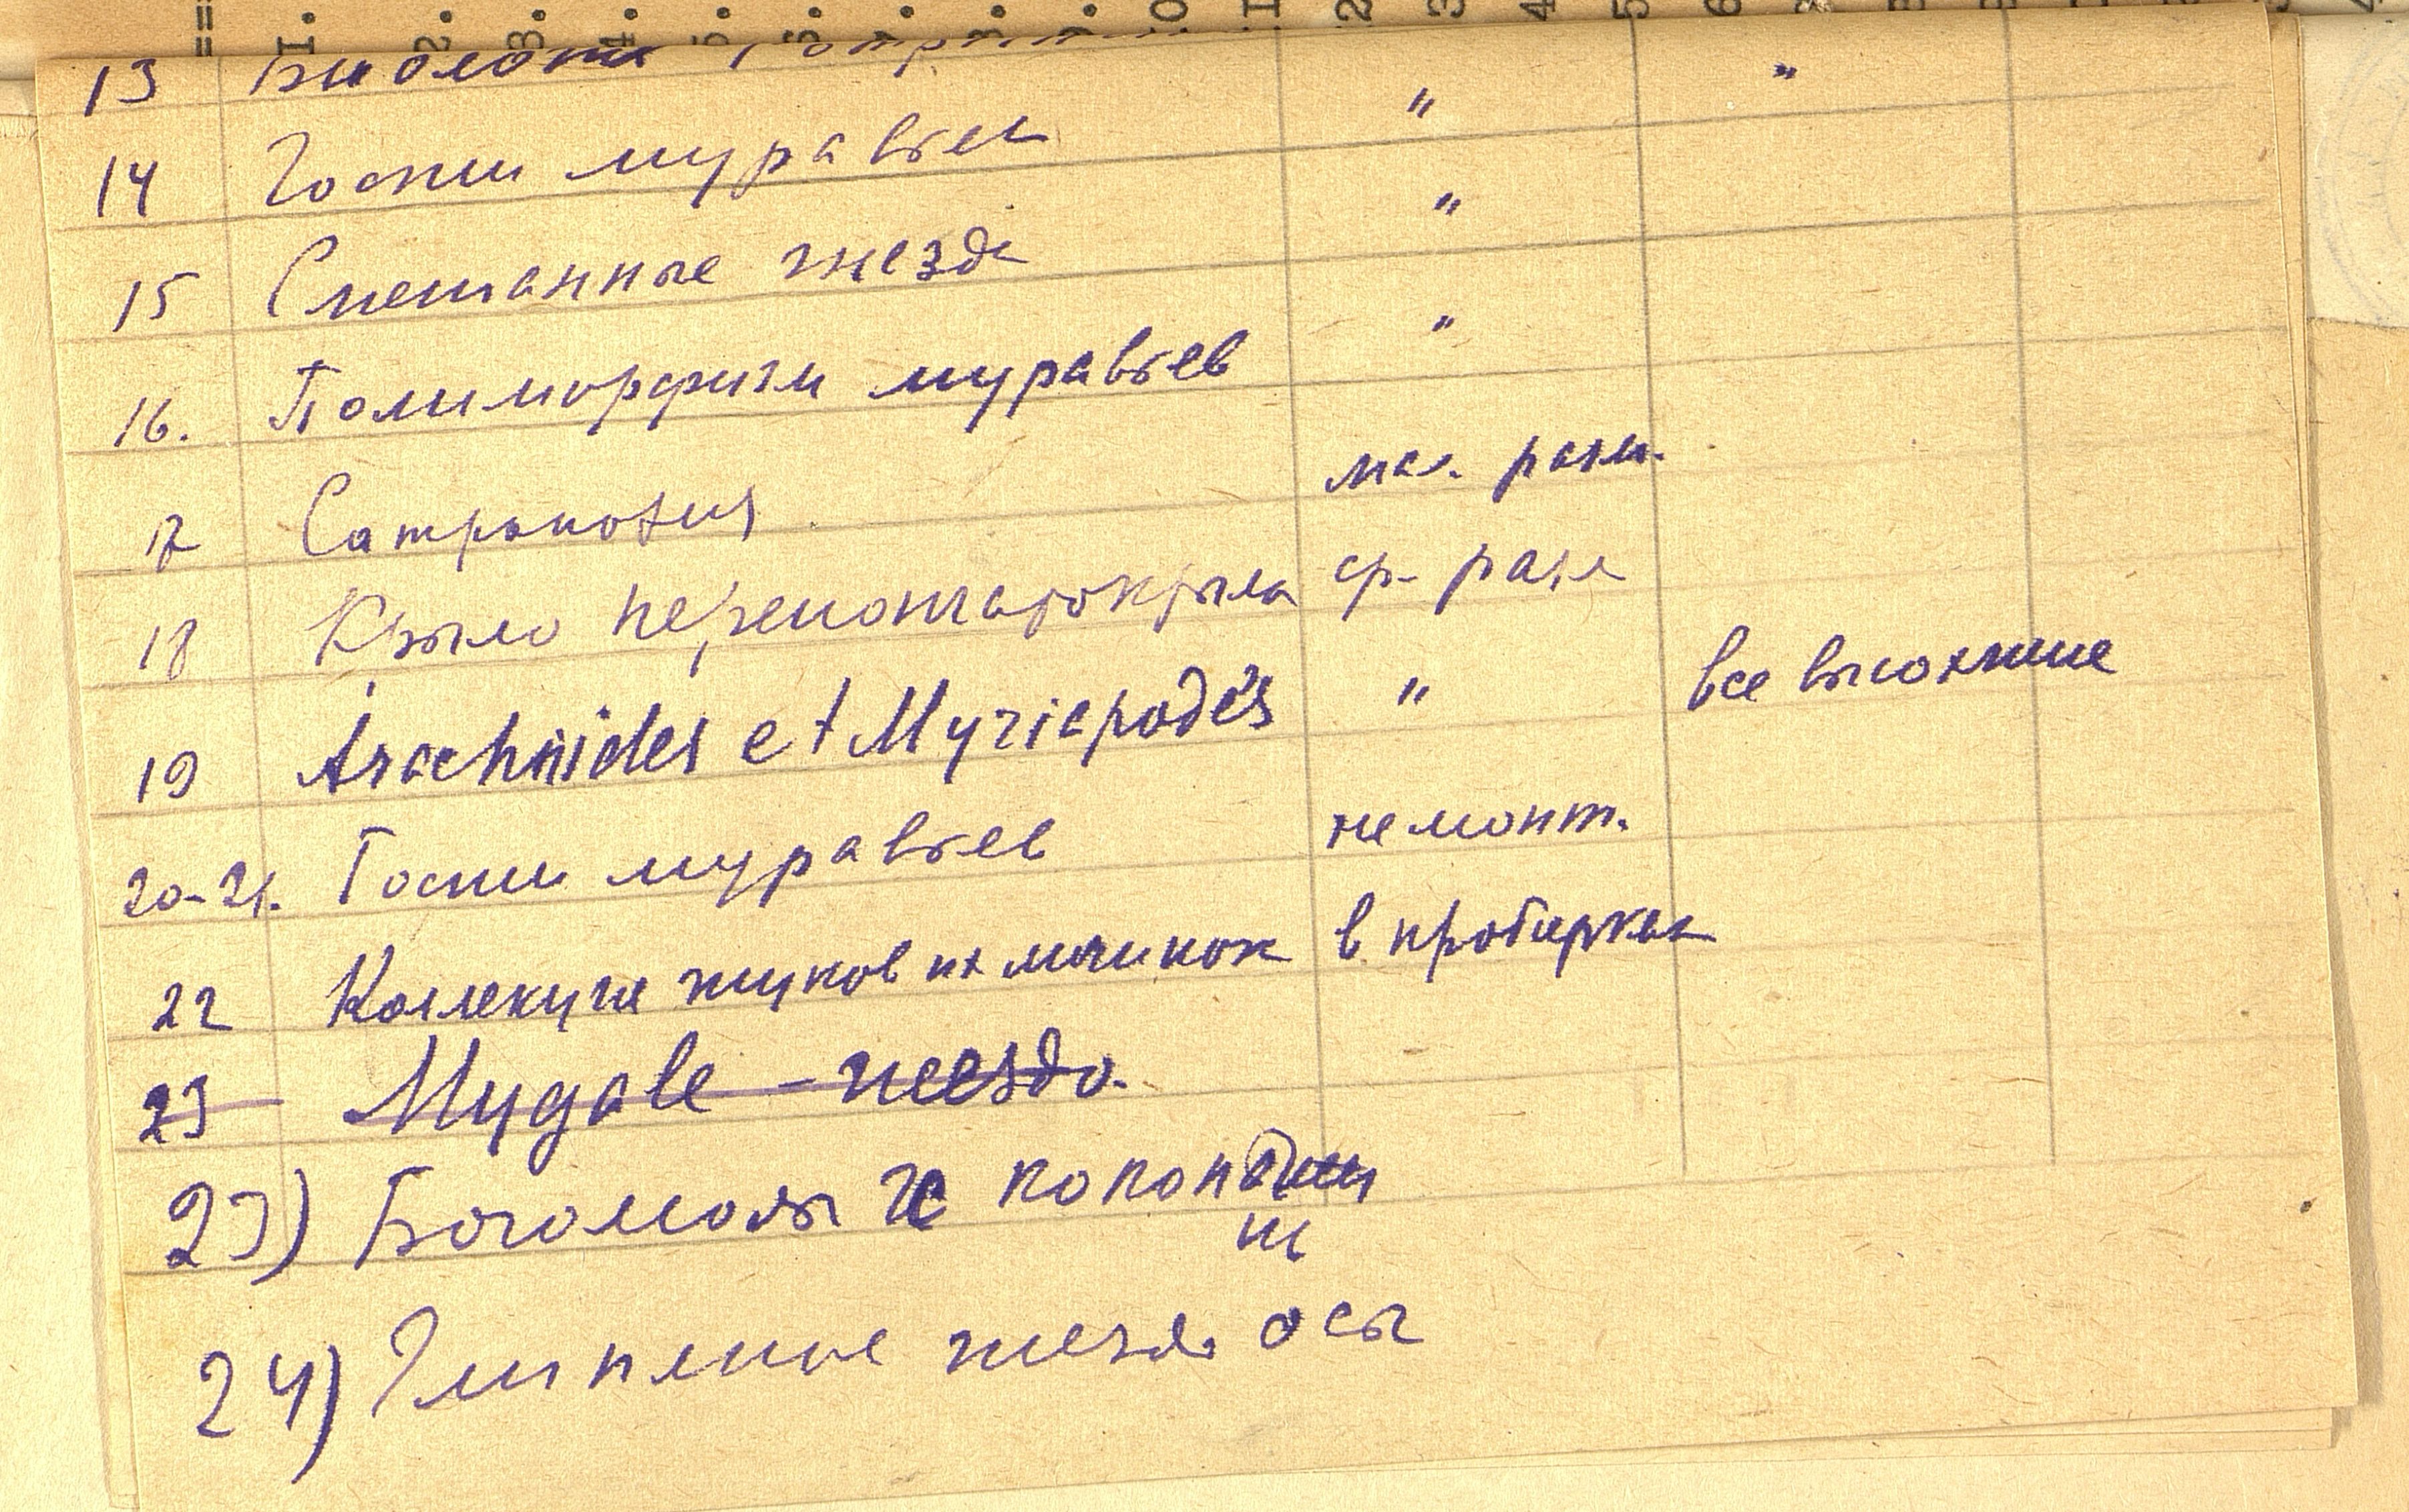 1. 2. 3. 4. 5. 6. 7. 8. 9. 0 1 2 3 4 5 6
13 Биология " "
14 Гости муравьев "
15 Смешанные гнезда "
16. Полиморфизм муравьев
17 мал. разм.
18 Крыло перепончатокрыла ср. разм
19 Arachnides et Myriapodes " все высохшие
20-21. Гости муравьев немонт.
22 Коллекция жуков их личинок в пробирках
23 Mygale - гнездо
23) Богомолы и коконы их
24) Глиняные гнезда осы